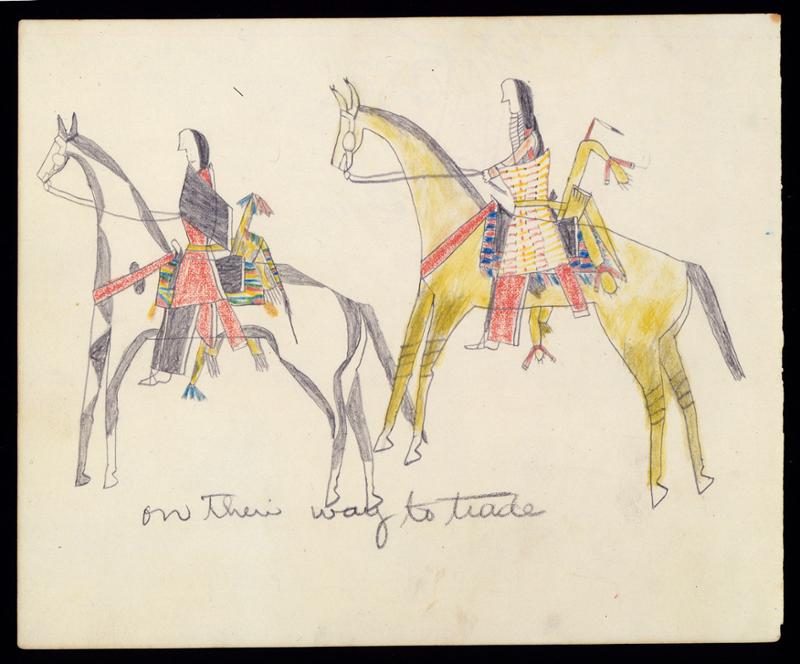 on their way to trade